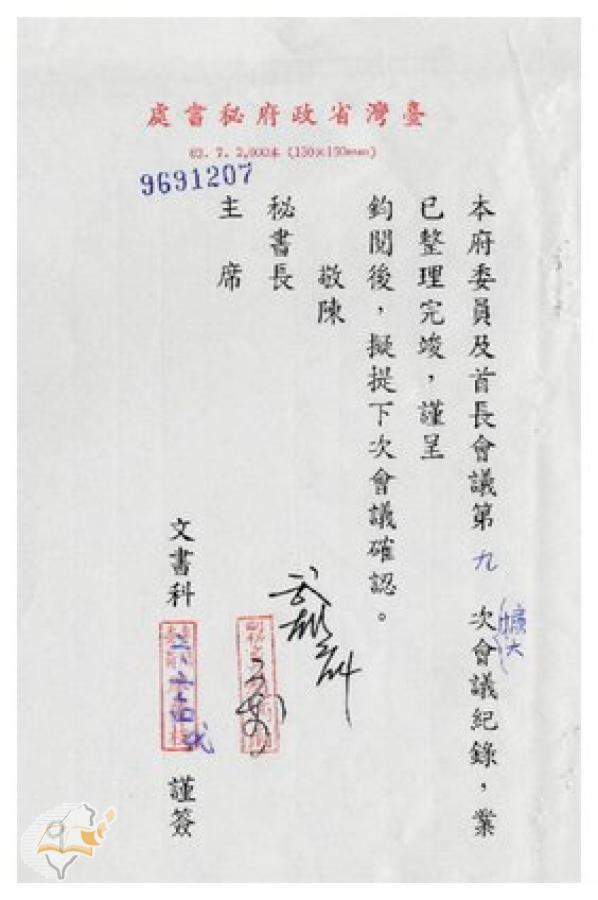 處書秘府政省灣臺
83. 7. 2,000本 (130×190mm)
9691207
本府委員及首長會議第九次(擴大)會議紀錄，業
已整理完竣，謹呈
鈞閱後，擬提下次會議確認。
敬陳
秘書長
主席
文書科
謹簽